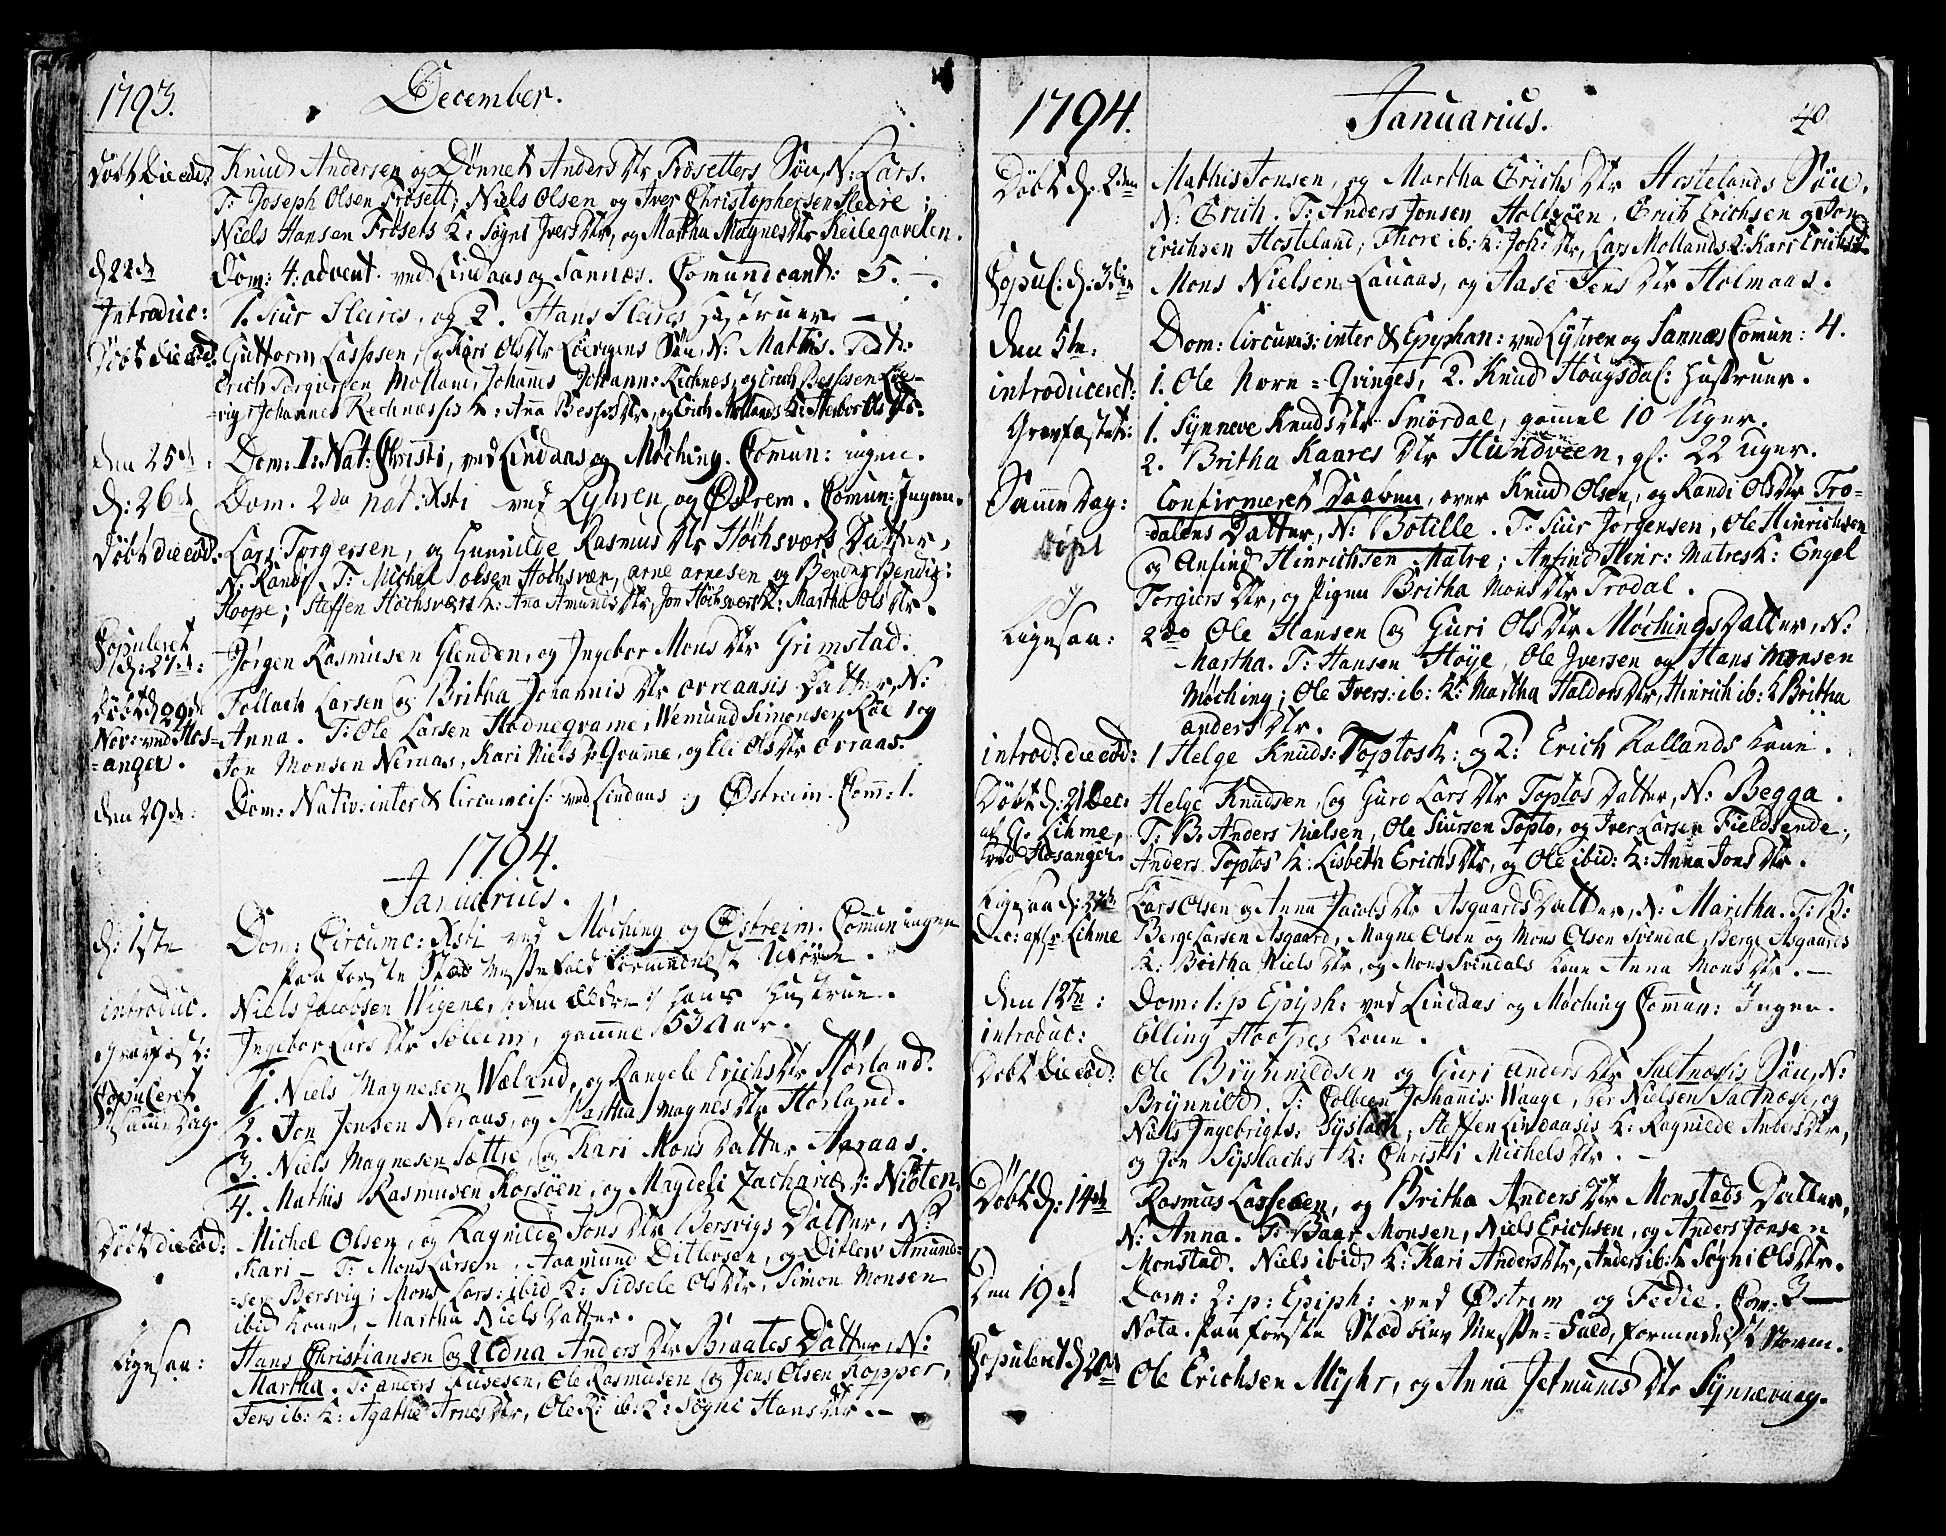 1793. December.
Döbt die eod: Knud Andersen og Dönnet Anders Dtr Frösetters Sön, N: Lars.
T: Joseph Olsen Frösett; Niels Olsen og Iver Christophersen Fleire;
Niels Hansen Frösets K: Sögni Ivers Dtr, og Martha Magnes Dtr Keilegavelen.
d 22de Dom: 4. advent. ved Lindaas og Sannæs. Comunicant: 5.
Introduc: 1. Siur Fleires, og 2. Hans Fleires Hustruer
Döbt die eod: Guttorm Lassesen, og Kari Ols Dtr Sön, N: Mathis. Test:
Erich Torgiersen Molland, Johannes Johann: Rechnæs, og Erich Bessesen
Johannes Rechnæsses K: Anna Besses Dtr, og Erich Mollands K: Herbor Ols Dtr.
den 25de. Dom: I: Nat: Christi, ved Lindaas og Möching. Comun: ingen.
d: 26de Dom. 2da nat: Xsti ved Lygren og Östrem. Comun: Ingen.
Döbt die eod: Lars Torgersen, og Gunnilde Rasmus Dtr Höchsværs Datter,
N: Randi T: Michel olsen Höchsvær, arne arnesen og Bendix Bendix:
Hoope; Steffen Höchsværs K: Ana Amunds Dtr, Jon Höchsværs K: Martha Ols Dtr.
Copuleret d: 27de: Jörgen Rasmusen Glenden, og Ingebor Mons Dtr Grimstad.
Döbt d 29de Follach Larsen og Britha Johannis Dtr ovreaasis Datter, N:
Nov: ved Hos- Anna. T: Ole Larsen Hodnegrame, Wemund Simonsen Röe og
=anger. Jon Monsen Neraas, Kari Niels D: Gramme, og Eli Ols Dtr ovraas.
den 29de: Dom: Nativ: inter & Circumcis: ved Lindaas og Östreim. Com: 1.
1794.
Januarius.
d: 1ste Dom: Circumc: Xsti ved Möching og Östreim. Comun ingen
paa forste Stæd Messefald formedelst Uföre.
introduc. Niels Jacobsen Wigene, den ældre hans Hustrue.
gravfest: Ingebor Lars Dtr Soleim, gamel 53 Aar.
Copuleret 1. Niels Magnesen Wæland, og Rangele Erichs Dtr Hörland.
Samme Dag. 2. Jon Jensen Neraas, og Martha magnes Dtr Horland.
3. Niels Magnesen Sættre, og Kari Mons Datter Aaraas.
4. Mathis Rasmusen Korsöen, og Magdeli Zacharia D: Niöten
Döbt die eod: Michel Olsen, og Ragnilde Jons Dtr Bersvigs Datter, N:
Kari - T: Mons Larsen, Aamund Ditlevsen, og Ditlew Amund-
=sen Bersvig; Mons Lars: ibid K: Sidsele Ols Dtr, Simon Monsen
ibid Kone, Martha Niels Datter.
Ligesaa: Hans Christiansen og Edna Anders Dtr Braates Datter, N:
Martha. T: anders Fusesen, Ole Rasmusen og Jens Olsen Kopper,
Jens ib: K: Agathe Arnes Dtr, Ole R: ib: K: Sögni Hans Dtr.
1794. Januarius. 40
Döbt d: 2den Mathis Jonsen, og Martha Erichs Dtr Hostelands Sön.
N: Erich. T: Anders Jonsen Holtzöen, Erich Erichsen og Jon
Erichsen Hosteland; Thore ib: K: Joh: Dtr, Lars Mollands K: Kari Erichs D
Copul: d: 3die Mons Nielsen Lauaas, og Aase Jens Dtr Holmaas.
den 5te. Dom: Circumc: inter & Epyphan: ved Lygren og Sannæs Comun: 4.
introduceret: 1. Ole Norn=Qvinges, 2. Knud Hougsdal: Hustruer.
Gravfæstet: 1. Synneve Knuds Dtr Smördal, gamel 10 Uger.
2. Britha Kaares Dtr Hundveen, gl: 22 uger.
Samme Dag: Confirmeret Daaben, over Knud Olsen, og Randi Ols Dtr Tro-
döpt =dalens Datter, N: Botille. T: Siur Jörgensen, Ole Hinrichsen
og Anfind Hinrichsen Matre; Anfind Hinr: Matres K: Engel
Torgiers Dtr, og Pigen Britha Mons Dtr Trodal.
Ligesaa: 2do Ole Hansen og Guri Ols Dtr Möchings Datter, N:
Martha. T: Hansen Höye, Ole Iversen og Hans Monsen
Möching; Ole Ivers: ib: K: Martha Haldors Dtr, Hinrich ib: K Britha
anders Dtr.
introd: die eod: 1 Helge Knuds: Toptos K: og 2: Erich Kallands Kone.
Döbt d: 21 Dec: Helge Knudsen, og Guro Lars Dtr Toptos Datter, N: Begga.
af G. Lihme, T: B: Anders Nielsen, Ole Siursen Topto, og Iver Larsen Fieldsende,
ved Hosanger. Anders Toptos K: Lisbeth Erichs Dtr, og Ole ibid: K: Anna Jons Dtr.
Ligesaa d: 27de Lars Olsen og Anna Jacobs Dtr Asgaards Datter, N: Maritha. T: B:
Dec: af Hr Lihme Berge Larsen Asgaard, Magne Olsen og Mons Olsen Svindal, Berge Asgaards
K: Britha Niels Dtr, og Mons Svindals Kone Anna Mons Dtr.
den 12te: Dom: 1: p Epiph: ved Lindaas og Möching Comun: Ingen.
introduc: Elling Hoopes Kone.
Döbt die eod: Ole Brynnildsen og Guri anders Dtr Saltnæsis Sön, N:
Brynnild. T: Colben Johannis: Waage, Per Nielsen Saltnæse, og
Niels Ingebrigts: Syslach, Steffen Lindaasis K: Ragnilde Anders Dtr,
og Jon Syslachs K: Christi Michels Dtr.
Döbt d: 14de Rasmus Lassesen, og Britha Anders Dtr Monstads Datter,
N: Anna. T: Baar Monsen, Niels Erichsen, og Anders Jonsen
Monstad. Niels ibid: K: Kari Anders Dtr, Anders ib: K Sögni Ols Dtr.
Den 19de Dom: 2: p: Epiph: ved Östrem og Fedie. Com: 3
Nota. paa förste Stæd blev Messe=Fald, formedelst Storm.
Copuleret d 20de Ole Erichsen Myhr, og Anna Jetmunds Dtr Synnevaag.